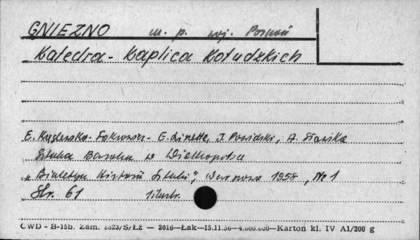 GNIEZNO m. p. woj. Poznań
Katedra - Kaplica Kołudzkich
E. Kręglewska-Foksowicz - E. Linette, J. Powidzki, A. Sławska
Sztuka Baroku w Wielkopolsce
"Biuletyn Historii Sztuki", Warszawa 1958, Nr 1
Str. 61 ilustr.
CWD - B-15b. Zam. 5523/S/ŁŻ — 2016—Łak—15.11.56—4.000.000—Karton kl. IV A1/200 g